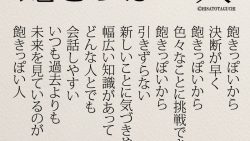 ©HISATOTAGUCHI
飽きっぽいから
決断が早く
飽きっぽいから
色々なことに挑戦で
飽きっぽいから
引きずらない
新しいことに気づき
幅広い知識があって
どんな人とでも
会話しやすい
いつも過去よりも
未来を見ているのが
飽きっぽい人